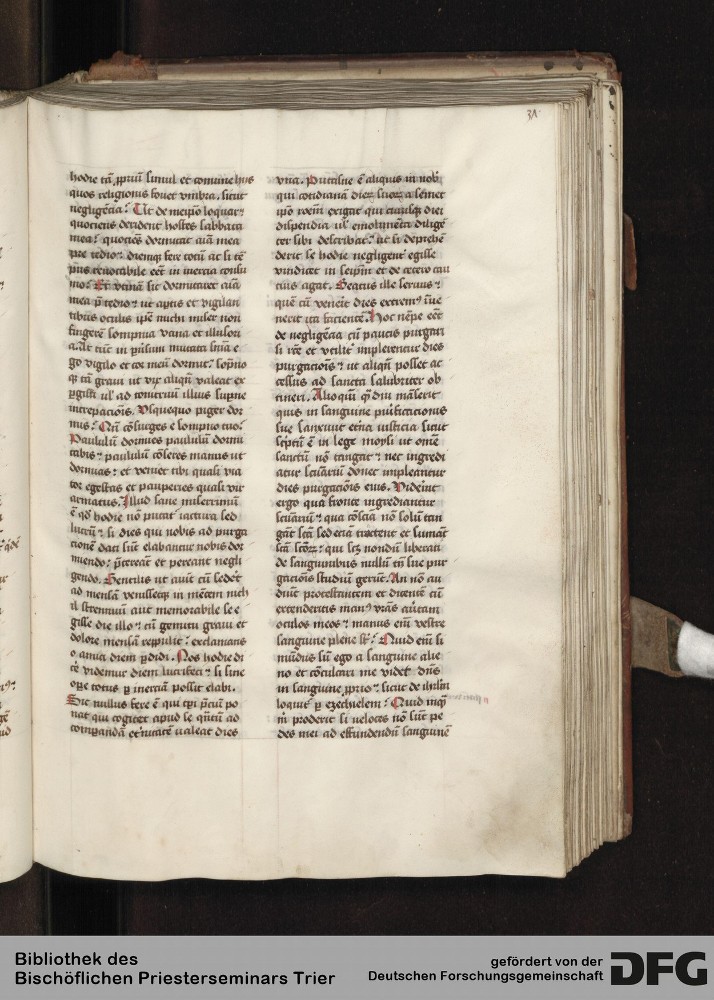 31
hodie tā ꝓpriū simul et comune hiis
quos religionis fouet vmbra. sicut
negligēcia? Ut de meipō loquar?
quociens derident hostes sabbata
mea? quociēs dormitat aīa mea
pre tedio? diemqꝫ fere totū ac si tē
pus reuocabile eēt in inercia consu
mo? Et vtinā sic dormitaret aīa
mea p̄ tedio? ut apertis et vigilan
tibus oculis ipē michi miser non
fingerē sompnia vana et illusori
go vigilo et cor meū dormit? sopno
qꝫ tā graui ut vix aliqn̄ valeat ex
pgisci ul' ad tonitruū illius supne
increpacionis. Vsquequo piger dor
mis? Qn̄ cōsurges e sompno tuo?
Paululū dormies paululū dormi
tabis? paululū cōseres manus ut
dormias? et veniet tibi quasi via
tor egestas et pauperies quasi vir
armatus. Illud sane miserrimū
ē qd' hodie nō putat' iactura sed
lucrū? si dies qui nobis ad purga
cionē dati sūt elabantur nobis dor
miendo? p̄tereāt et pereant negli
gendo. Gentilis ut aiūt cū sedēt
ad mensā venissetqꝫ in mētem nich
il strennuū aut memorabile se e
gisse die illo? cū gemitu graui et
dolore mensā reppulit? exclamans
o amici diem ꝑdidi. Nos hodie di
tē videmur diem lucrifeci? si sine
oꝑe totus ꝑ inerciā possit elabi.
Sic nullus fere ē qui xpi p̄ciū po
nat qui cogitet apud se qn̄tū ad
comꝑandā et'nitatē ualeat dies
vna. Putasne ē aliquis in nob'
qui cotidianā dierū suorū a semet
ipō rōem exigat qui cuiusqꝫ diei
dispendia ul' emolumēta diligē
ter sibi describat? ut si deprehē
derit se hodie negligent' egisse
vindicet in seipm̄ et de cetero cau
cius agat. Beatus ille seruus?
quē cū venerit dies extremꝰ īue
nerit ita facientē. Hoc nēpe eēt
de negligēcia cū paucis purgari
si rcē et vtilit' implerentur dies
purgacionis? ut aliqn̄ posset ac
cessus ad sancta salubriter ob
tineri. Alioquī qm̄ diu māserit
quis in sanguine purificacionis
sue
scriptū ē in lege moysi ut omē
sanctū nō tangat? nec ingredi
atur scūariū donec impleantur
dies purgacionis eius. Viderint
ergo qua fronte ingrediantur
scūariū? qua cōsciā nō solū tan
gāt scā sed eciā tractent et sumāt
scā scōrꝫ? qui scꝫ nondū liberati
de sanguinibus nullū tn̄ sue pur
gacionis studiū gerūt. An nō au
diūt protestantem et dicentē cū
extenderitis manꝰ vrās auertam
oculos meos? manus enī vestre
sanguine plene st'? Quid enī si
mūdus sū ego a sanguine alie
no et cōculcatū me videt dn̄s
in sanguine ꝓprio? sicut de ihrlm̄
loquit' ꝑ ezechielem? Quid inqꝫ
m̄ proderit si veloces nō sūt pe
des mei ad effundendū sanguinē
Bibliothek des
Bischöflichen Priesterseminars Trier
gefördert von der
Deutschen Forschungsgemeinschaft
DFG